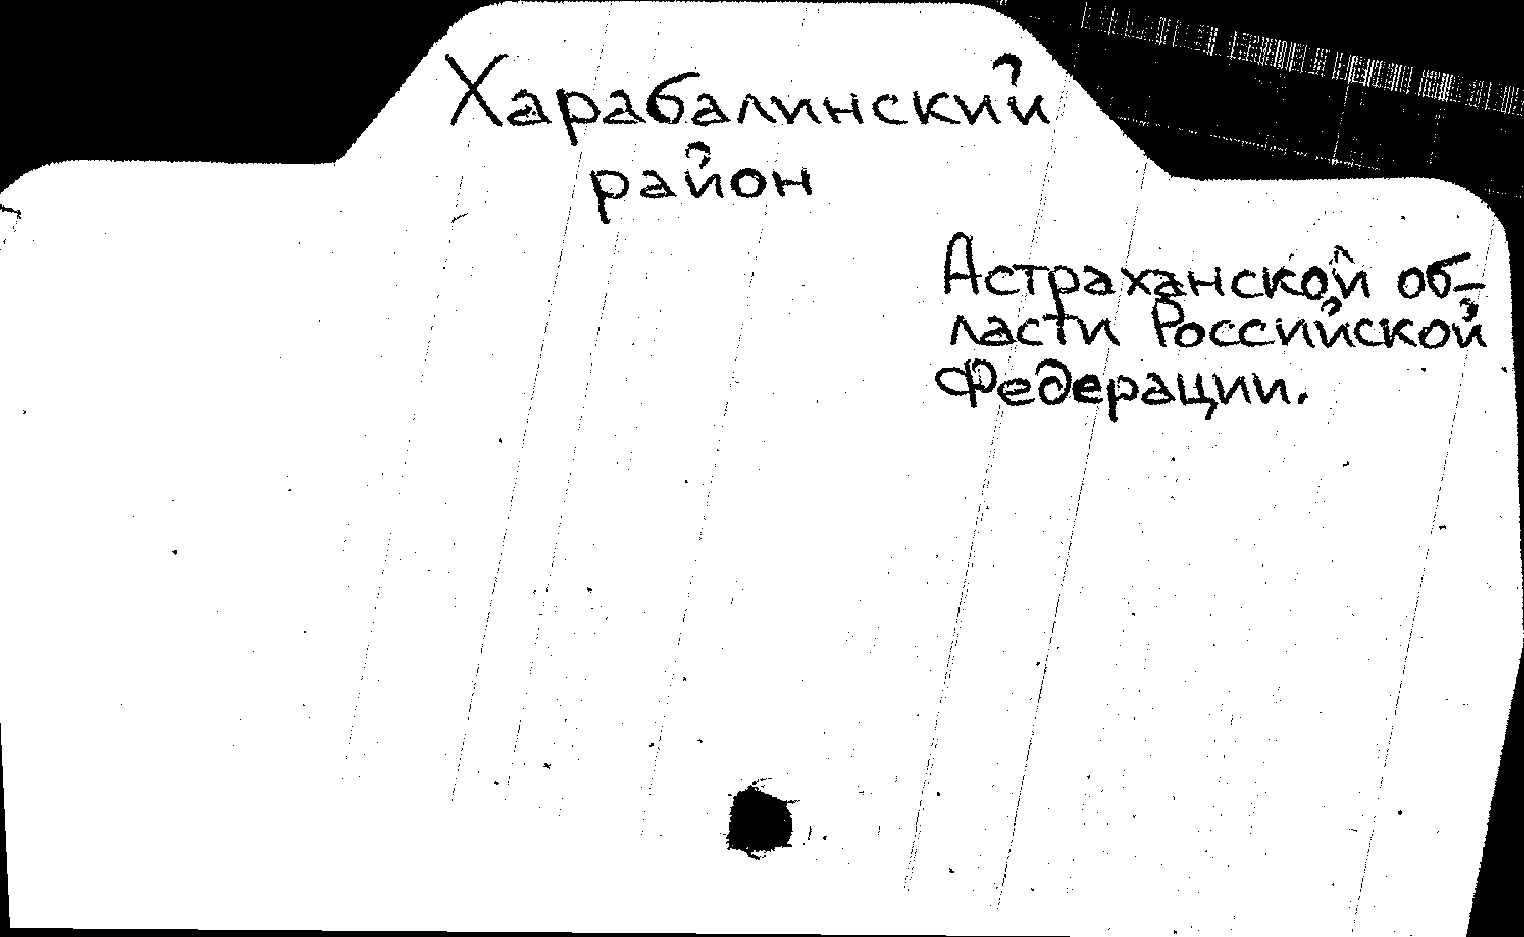 Харабалинский
район
Астраханской об-
ласти Российской
Федерации.